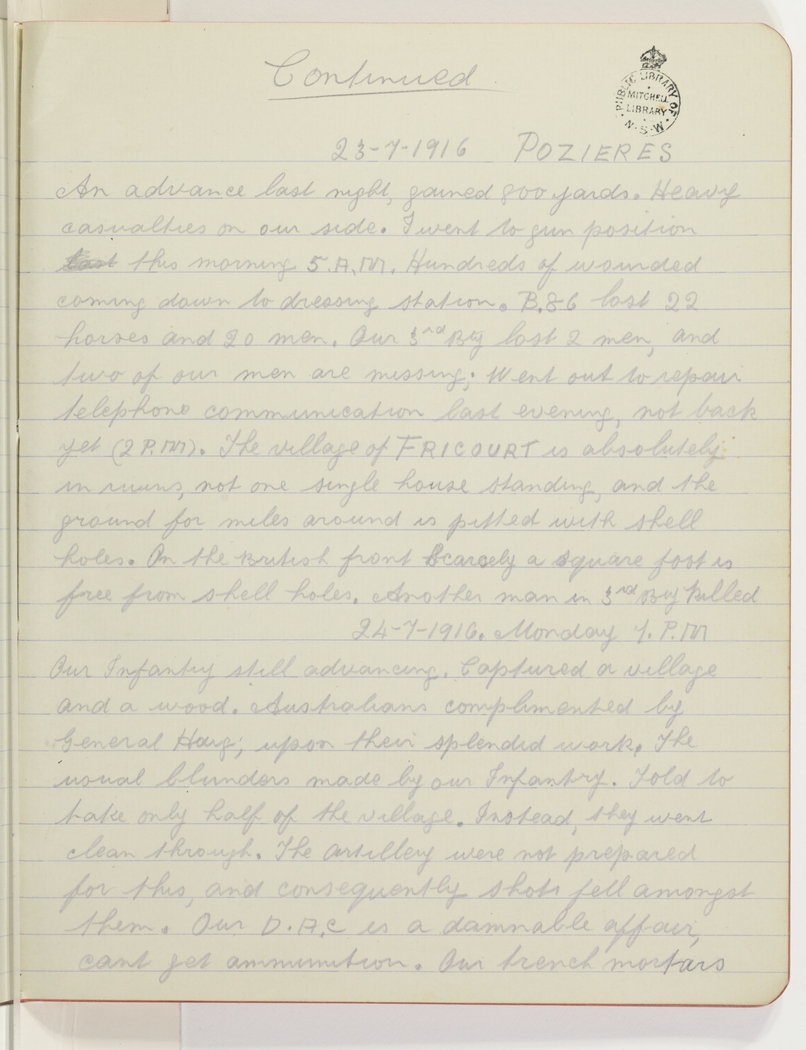 Continued
PUBLIC LIBRARY OF
MITCHELL
LIBRARY
N.S.W.
23-7-1916 POZIERES
An advance last night, gained 800 yards. Heavy
casualties on our side. I went to gun position
last this morning 5.A.M. Hundreds of wounded
coming down to dressing station. B.86 lost 22
horses and 20 men. Our 3rd Bty lost 2 men, and
two of our men are missing; Went out to repair
telephone communication last evening, not back
yet (2 P.M). The village of FRICOURT is absolutely
in ruins, not one single house standing, and the
ground for miles around is pitted with shell
holes. On the British front Scarcely a square foot is
free from shell holes. Another man in 3rd Bty killed
24-7-1916. Monday 7. P.M
Our Infantry still advancing. Captured a village
and a wood. Australians complimented by
General Haig; upon their splendid work. The
usual blunders made by our Infantry. Told to
take only half of the village. Instead, they went
clean through. The artillery were not prepared
for this, and consequently shots fell amongst
them. Our D.A.C is a damnable affair,
cant get ammunition. Our trench mortars